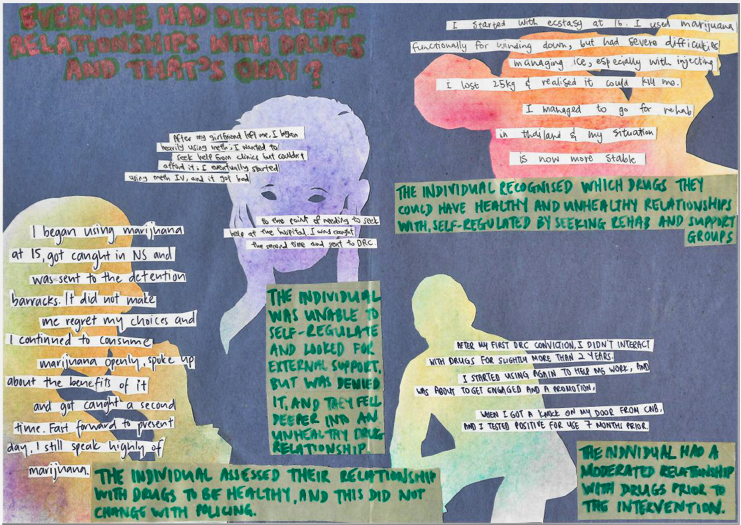 EVERYONE HAD DIFFERENT
RELATIONSHIPS WITH DRUGS
AND THAT'S OKAY?
I started with ecstasy at 16. I used marijuana
functionally for winding down, but had severe difficulties
managing ice, especially with injecting.
I lost 25kg & realised it could kill me.
I managed to go for rehab
in thailand & my situation
is now more stable
THE INDIVIDUAL RECOGNISED WHICH DRUGS THEY
COULD HAVE HEALTHY AND UNHEALTHY RELATIONSHIPS
WITH, SELF-REGULATED BY SEEKING REHAB AND SUPPORT
GROUPS
After my girlfriend left me, I began
heavily using meth. I wanted to
seek help from clinics but couldn't
afford it. I eventually started
using meth IV, and it got bad
to the point of needing to seek
help at the hospital. I was caught
the second time and sent to DRC
THE INDIVIDUAL
WAS UNABLE TO
SELF-REGULATE
AND LOOKED FOR
EXTERNAL SUPPORT,
BUT WAS DENIED
IT, AND THEY FELL
DEEPER INTO AN
UNHEALTHY DRUG
RELATIONSHIP
I began using marijuana
at 15, got caught in NS and
was sent to the detention
barracks. It did not make
me regret my choices and
I continued to consume
marijuana openly, spoke up
about the benefits of it
and got caught a second
time. Fast forward to present
day, I still speak highly of
marijuana.
THE INDIVIDUAL ASSESSED THEIR RELATIONSHIP
WITH DRUGS TO BE HEALTHY, AND THIS DID NOT
CHANGE WITH POLICING.
AFTER MY FIRST DRC CONVICTION, I DIDN'T INTERACT
WITH DRUGS FOR SLIGHTLY MORE THAN 2 YEARS.
I STARTED USING AGAIN TO HELP MY WORK, AND
WAS ABOUT TO GET ENGAGED AND A PROMOTION,
WHEN I GOT A KNOCK ON MY DOOR FROM CNB,
AND I TESTED POSITIVE FOR USE 7 MONTHS PRIOR.
THE INDIVIDUAL HAD A
MODERATED RELATIONSHIP
WITH DRUGS PRIOR TO
THE INTERVENTION.